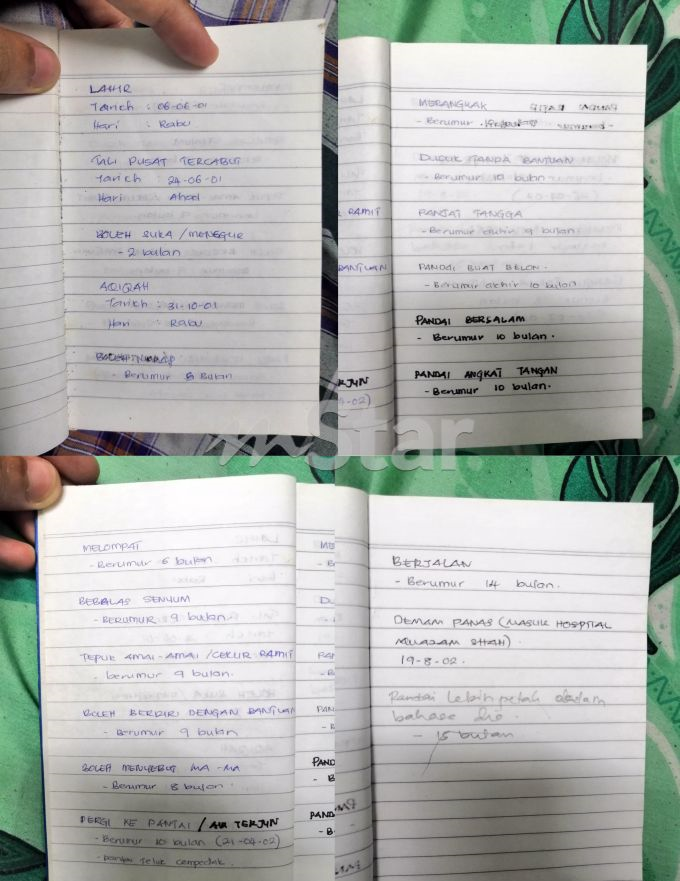 LAHIR
Tarikh : 06-06-01
Hari : Rabu
TALI PUSAT TERCABUT
Tarikh : 24-06-01
Hari : Ahad
BOLEH SUKA / MENEGUR
- 2 bulan
AQIQAH
Tarikh : 31-10-01
Hari : Rabu
- Berumur 5 Bulan
MERANGKAK
- Berumur
DUDUK TANPA BANTUAN
- Berumur 10 bulan
PANJAT TANGGA
- Berumur akhir 9 bulan
PANDAI BUAT BELON.
- Berumur akhir 10 bulan
PANDAI BERSALAM
- Berumur 10 bulan.
PANDAI ANGKAT TANGAN
- Berumur 10 bulan.
mStar.
MELOMPAT
- Berumur 6 bulan
BERBALAS SENYUM
- BERUMUR 9 bulan
TEPUK AMAI-AMAI / CEKUR RAMIT
- berumur 9 bulan.
BOLEH BERDIRI DENGAN BANTUAN
- Berumur 9 bulan
BOLEH MENYEBUT MA-MA
- Berumur 8 bulan
PERGI KE PANTAI / AIR TERJUN
- Berumur 10 bulan (21-04-02)
- pantai Teluk Cempedak.
BERJALAN
- Berumur 14 bulan.
DEMAM PANAS (MASUK HOSPITAL
MUADZAM SHAH).
19-8-02.
Pandai lebih petah dalam
bahasa dia.
- 15 bulan